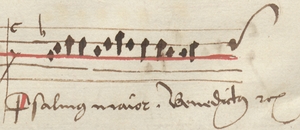 Psalmus maior . Benedictus rex